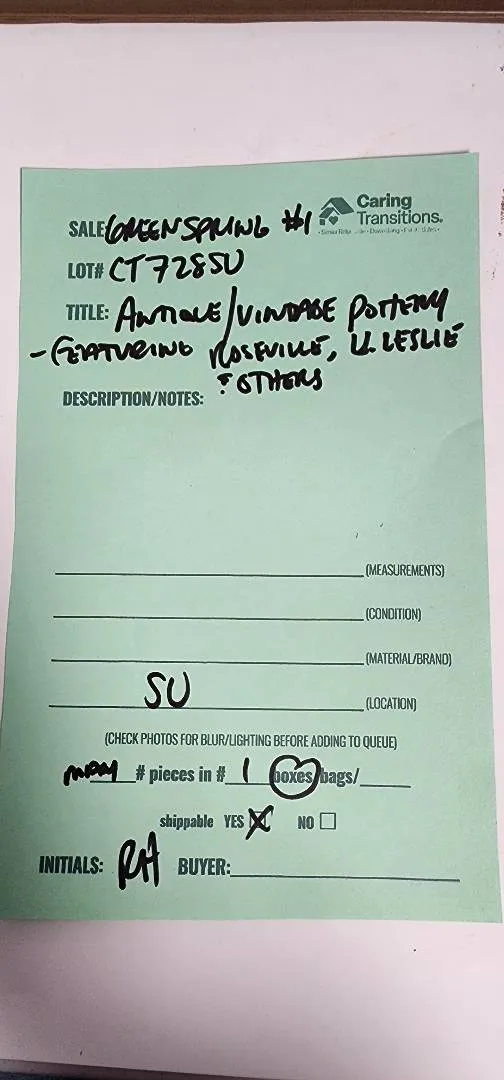 SALE GREENSPRING #1
Caring
Transitions®
LOT# CT7285U
TITLE: ANTIQUE/VINTAGE POTTERY
- FEATURING ROSEVILLE, U. LESLIE
& OTHERS
DESCRIPTION/NOTES:
(MEASUREMENTS)
(CONDITION)
(MATERIAL/BRAND)
SU (LOCATION)
(CHECK PHOTOS FOR BLUR/LIGHTING BEFORE ADDING TO QUEUE)
many # pieces in # 1 boxes/bags/
shippable YES X NO
INITIALS: RH BUYER: